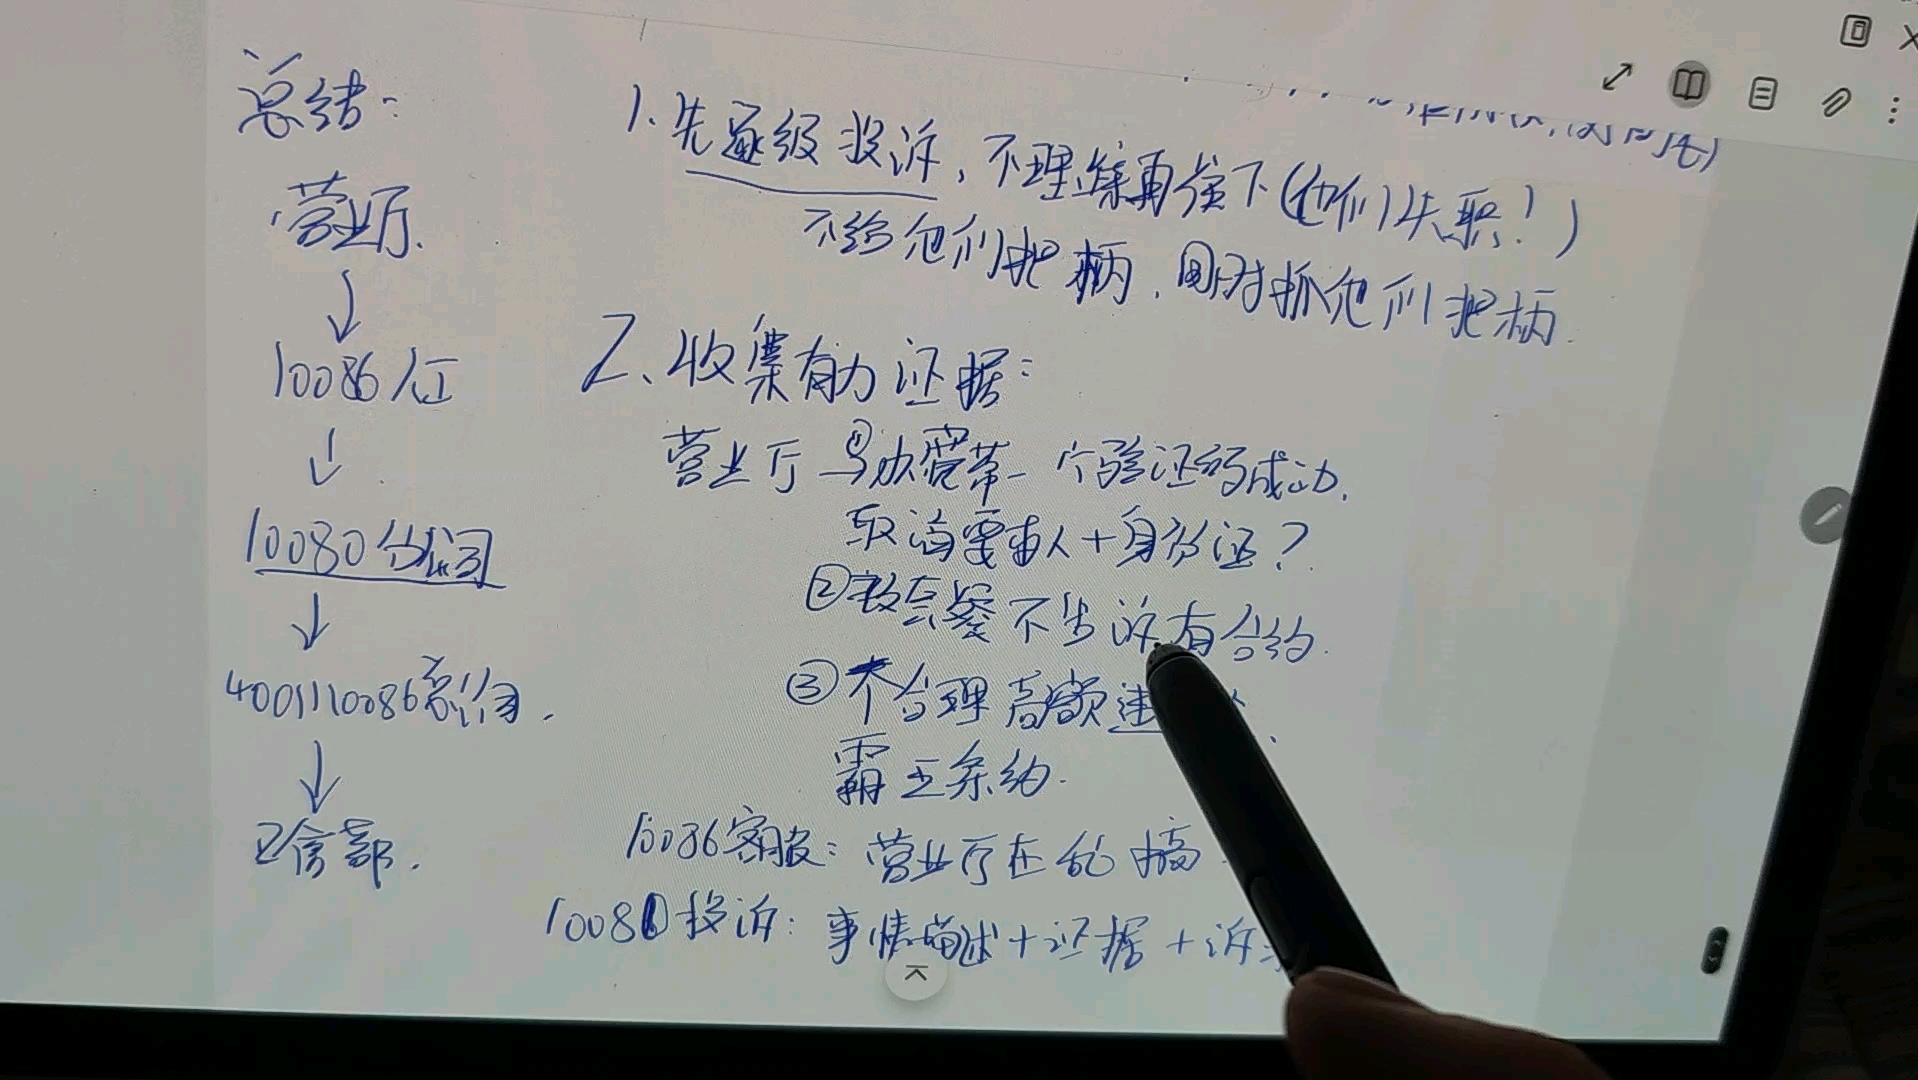 总结:
营业厅.
↓
10086人工
↓
10080分公司
↓
4001110086总公司.
↓
工信部.
1.先逐级投诉,不理踩再接下(他们失职!)
不给他们把柄.同时抓他们把柄.
2、收集有力证据:
营业厅 ①办宽带一个验证码成功.
取消要本人+身份证?
②改套餐不告诉有合约.
③不合理高额违
霸王条约.
10086客服:营业厅在乱搞.
10080投诉:事情描述+证据+诉